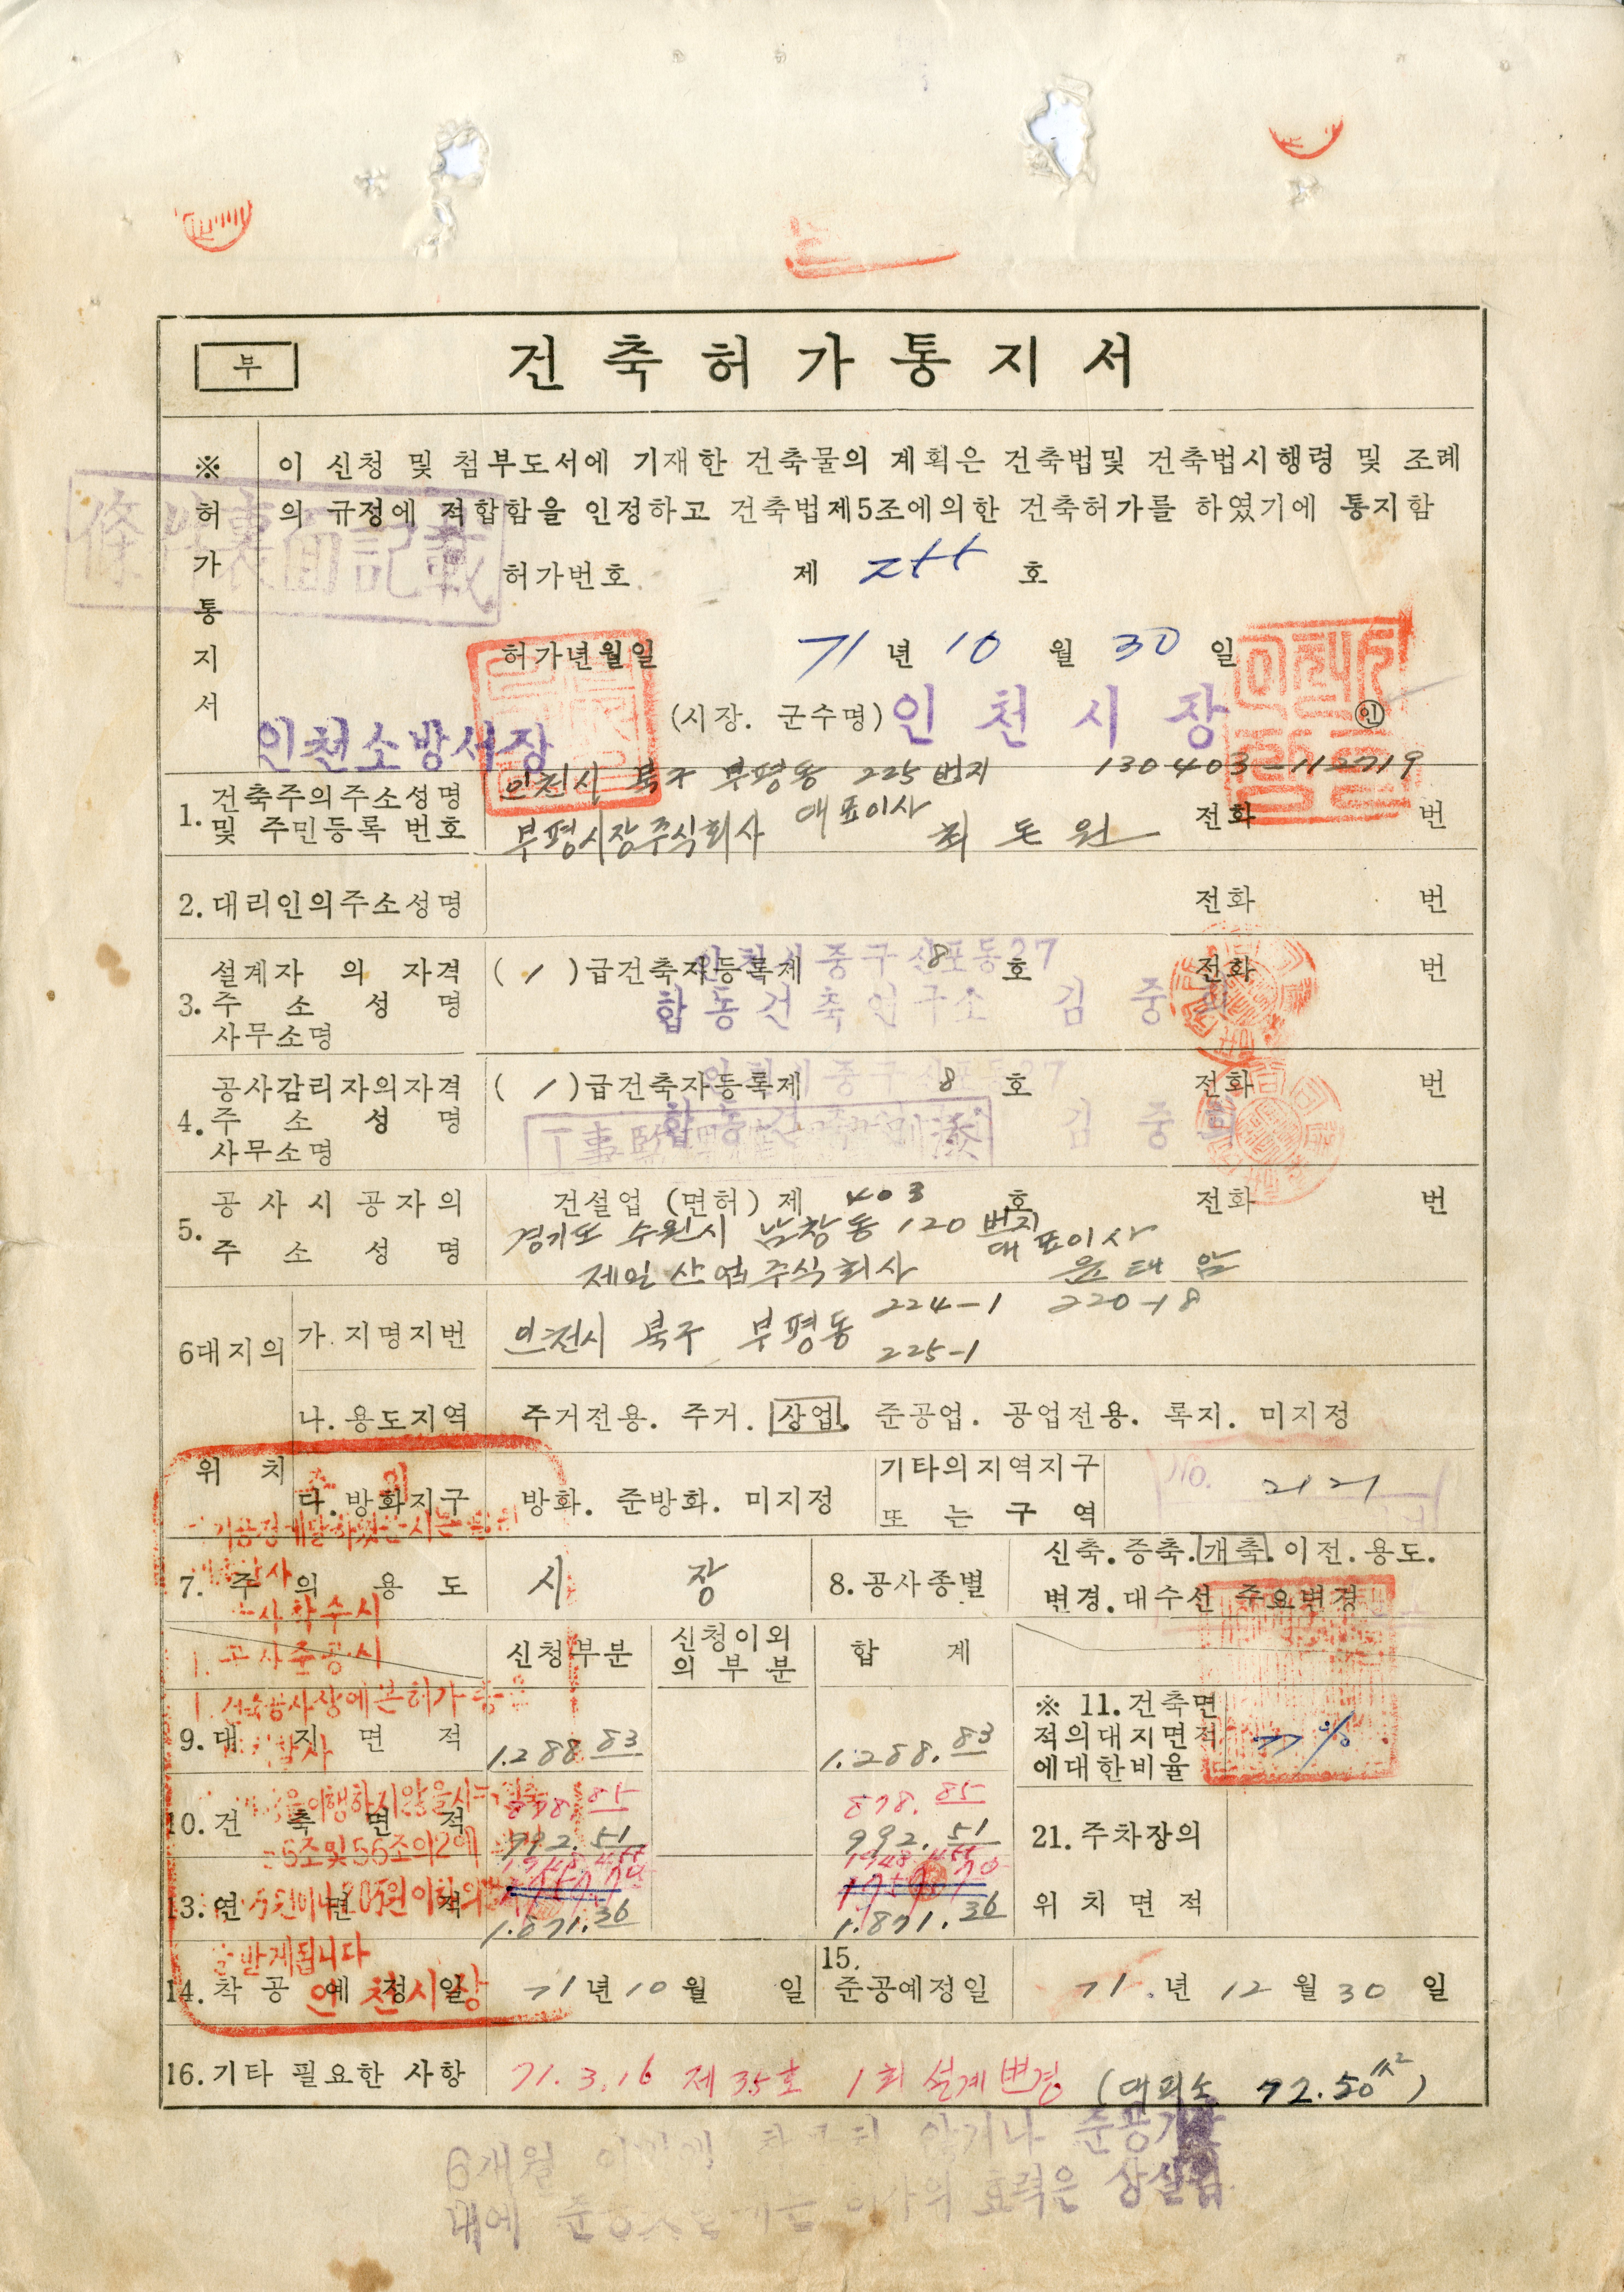 부
건축허가통지서
※허가통지서
이 신청 및 첨부도서에 기재한 건축물의 계획은 건축법및 건축법시행령 및 조례
의 규정에 적합함을 인정하고 건축법제5조에의한 건축허가를 하였기에 통지함
條件裏面記載
허가번호 제 호
허가년월일 71년 10월 30일
(시장. 군수명) 인천시장 ㊞
인천소방서장
1. 건축주의주소성명 및 주민등록 번호
인천시 북구 부평동 225번지 130403-112719
부평시장주식회사 대표이사 최돈원 전화 번
2. 대리인의주소성명 전화 번
3. 설계자의 자격 주소성명 사무소명
(1)급건축자등록제 8 호 전화 번
인천시중구신포동27
합동건축연구소 김중희
4. 공사감리자의자격 주소성명 사무소명
(1)급건축자등록제 8 호 전화 번
인천시중구신포동27
김중희
5. 공사시공자의 주소성명
건설업 (면허) 제 403 호 전화 번
경기도 수원시 남창동 120번지
제일산업주식회사 대표이사
6대지의 위치
가. 지명지번 인천시 북구 부평동 224-1 220-18
225-1
나. 용도지역 주거전용. 주거. 상업. 준공업. 공업전용. 록지. 미지정
다. 방화지구 방화. 준방화. 미지정
기타의지역지구 또는 구역
No. 2121
7. 주의 용도 시장
8. 공사종별 신축.증축.개축.이전.용도.
변경.대수선 주요변경
신청부분 신청이외의 부분 합계
9. 대지면적 1.288.83 1.288.83
※ 11. 건축면적의대지면적에대한비율 77%
10. 건축면적 878.85 878.85
992.51 992.51
21. 주차장의 위치면적
13. 연면적
1.871.36 1.871.36
14. 착공예정일 71년 10월 일
15. 준공예정일 71.년 12월 30일
16. 기타 필요한 사항 71.3.16 제35호 1회 설계변경 (대피소 72.50m²)
주의
공사착수시
1. 공사준공시
이행하지않을시
5조및56조의2에
을받게됩니다
인천시장
6개월
내에 효력은 상실함